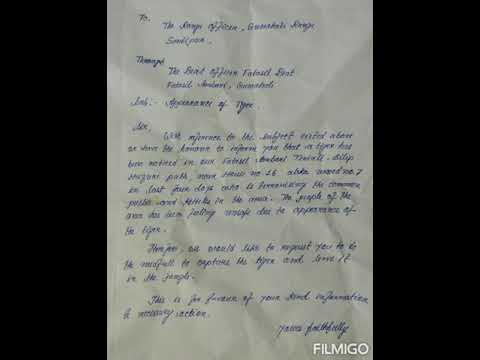 To,
The Range Officer, Guwahati Range
Through
The Beat Officer Fatasil Beat
Fatasil Ambari, Guwahati
Sub:- Appearance of Tiger.
Sir,
With reference to the subject cited above
we have the honour to inform you that a tiger has
been noticed in our Fatasil Ambari
Hazuri path, near House no 16 ward no. 7
in last four days who is terrorising the common
public and in the area. The people of the
area has been feeling unsafe due to appearance of
the tiger.
Therefore, we would like to request you to do
the needfull to capture the tiger and leave it
in the Jungle.
This is for favour of your kind information
& necessary action.
Yours faithfully
FILMIGO